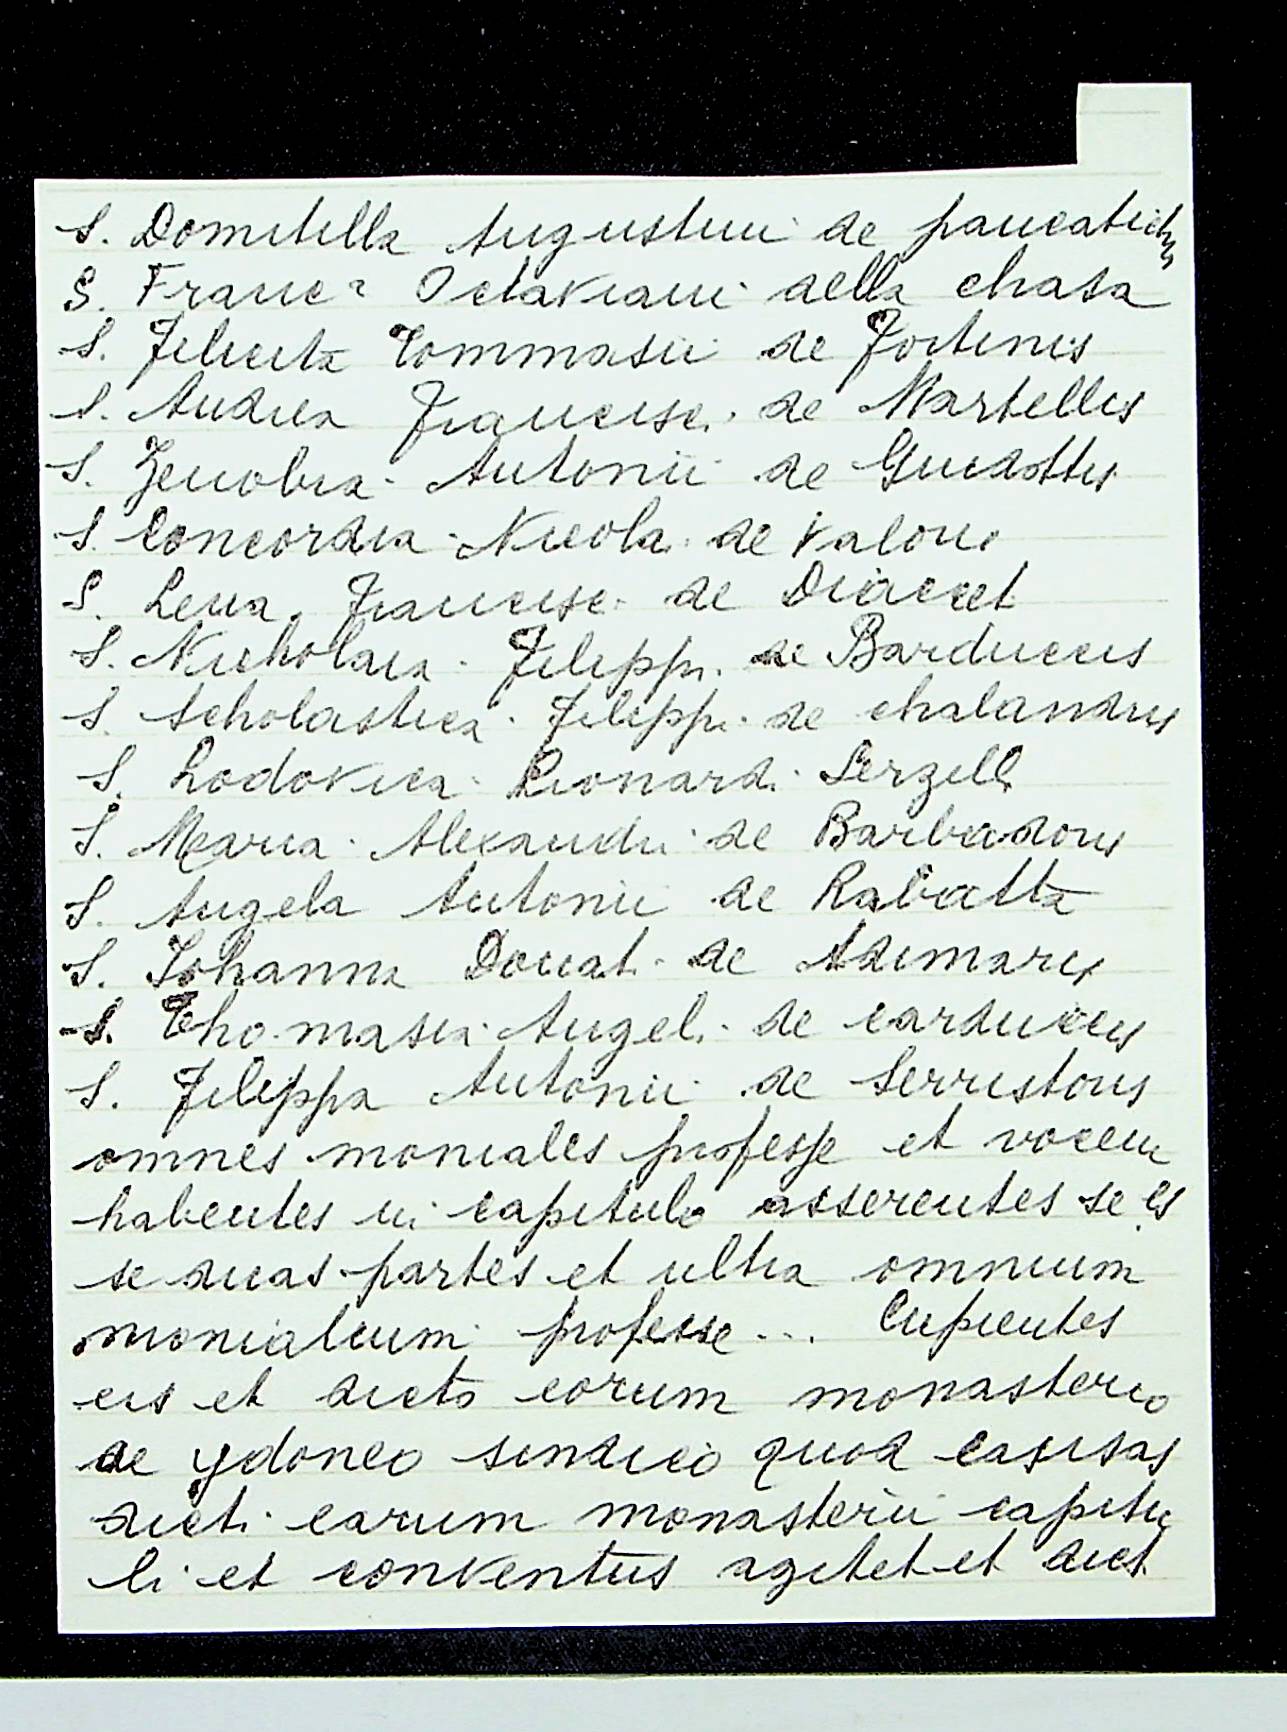 S. Domitilla Augustini de panciatichis
S. Franc.a Octaviani della chasa
S. Felicita Tommasii de Fortinis
S. Andrea Francisci de Martellis
S. Zenobia Antonii de Guidottis
S. Concordia Nicolai de Valori
S. Lena Francisci de Diaccet
S. Nicholaia Filippi de Barduccis
S. Scholastica Filippi de chalandris
S. Lodovica Lionardi Serzelli
S. Maria Alexandri de Barbadoris
S. Angela Antonii de Rabatta
S. Johanna Donati de Adimaris
S. Thomasia Angeli de carduccis
S. Filippa Antonii de Serristoris
omnes moniales professe et vocem
habentes in capitulo asserentes se es
se duas partes et ultra omnium
monialium professe ... Cupientes
eis et dicto eorum monasterio
de ydoneo sindico quod causas
dicti earum monasterii capitu
li et conventus agitet et dict